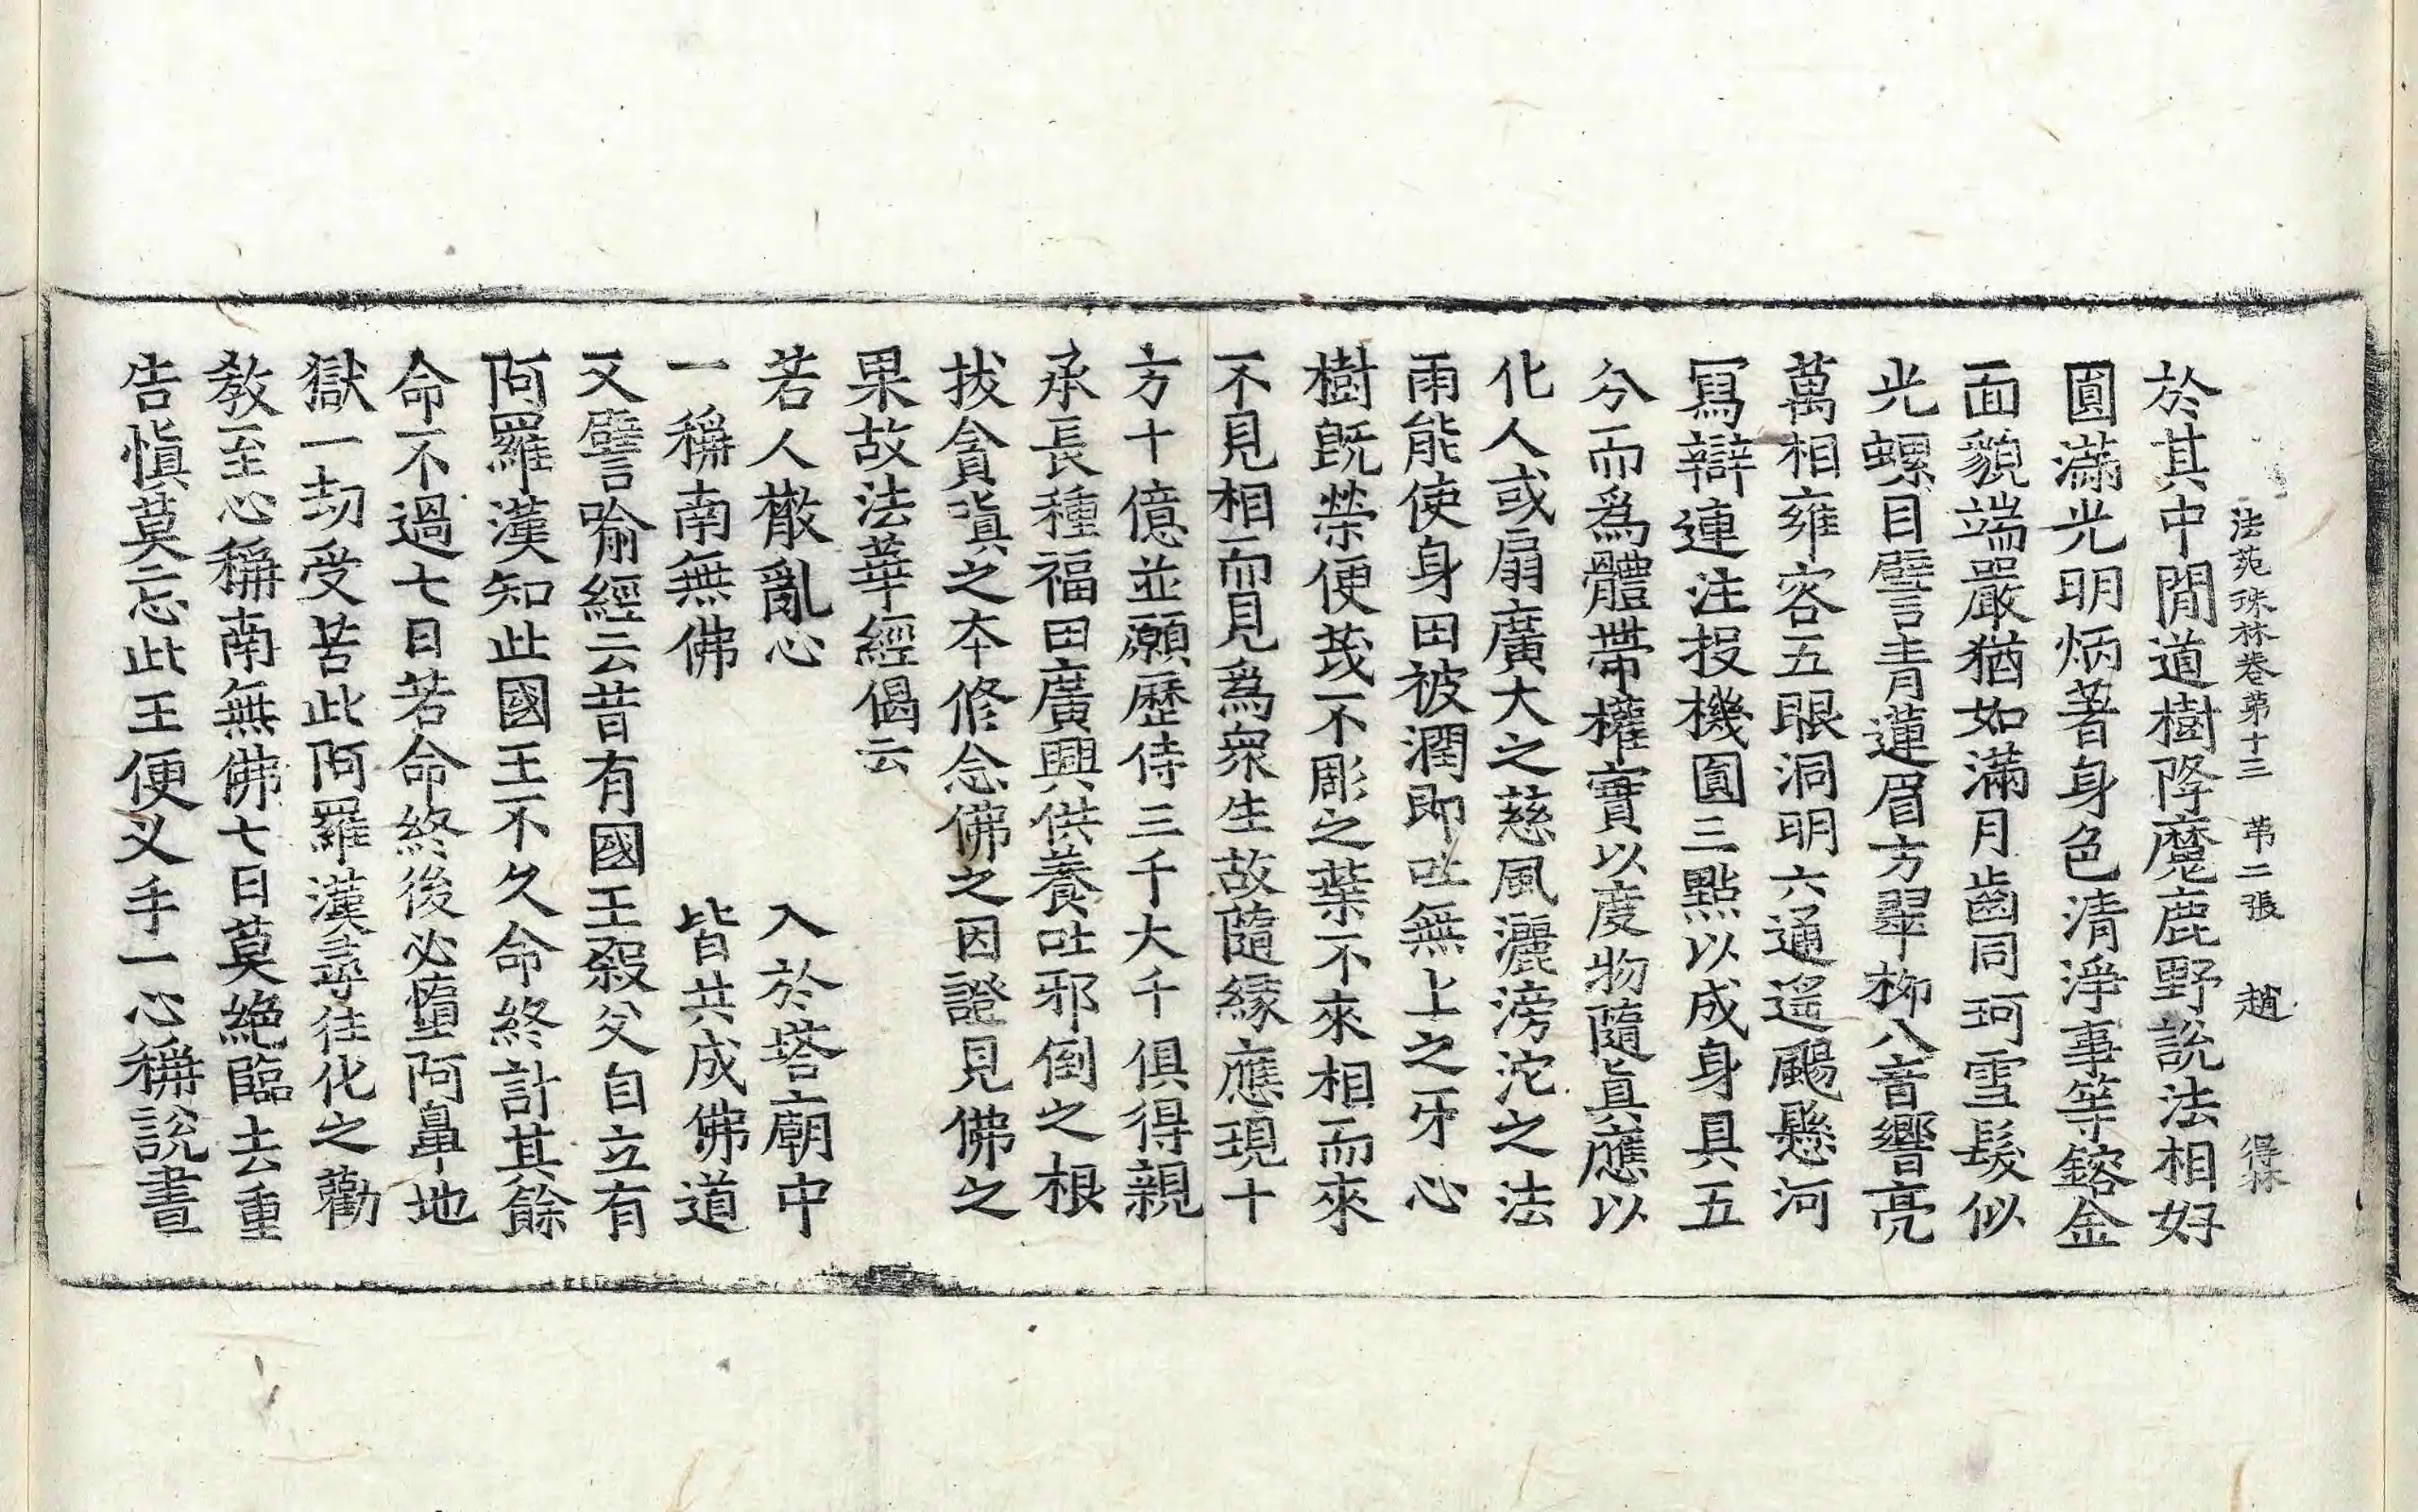 法苑珠林卷第十三　第二張　趙　得林
於其中閒道樹降魔鹿野說法相好
圓滿光明炳著身色清淨事等鎔金
面貌端嚴猶如滿月齒同珂雪髮似
光螺目譬青蓮眉方翠柳八音響亮
萬相雍容五眼洞明六通遙颺懸河
寫辯連注投機圓三點以成身具五
分而爲體帶權實以度物隨眞應以
化人或扇廣大之慈風灑滂沱之法
雨能使身田被潤即吐無上之牙心
樹旣榮便茂不彫之葉不來相而來
不見相而見爲衆生故隨緣應現十
方十億並願歷侍三千大千俱得親
承長種福田廣興供養吐邪倒之根
拔貪瞋之本修念佛之因證見佛之
果故法華經偈云
若人散亂心　入於塔廟中
一稱南無佛　皆共成佛道
又譬喻經云昔有國王殺父自立有
阿羅漢知此國王不久命終計其餘
命不過七日若命終後必墮阿鼻地
獄一劫受苦此阿羅漢尋往化之勸
教至心稱南無佛七日莫絕臨去重
告愼莫忘此王便叉手一心稱說晝